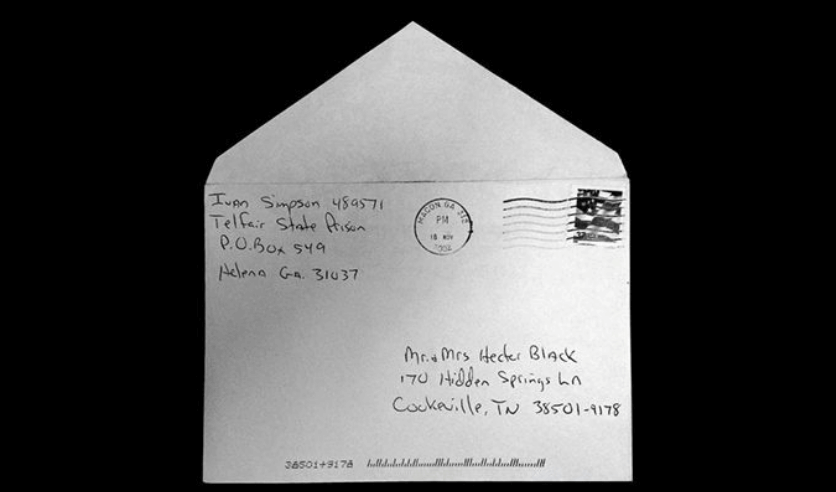 Ivan Simpson 489571
Telfair State Prison
P.O. Box 549
Helena Ga. 31037
MACON GA 312
PM
18 NOV
37
Mr. & Mrs Hector Black
170 Hidden Springs Ln
Cookeville, TN 38501-9178
38501+9178